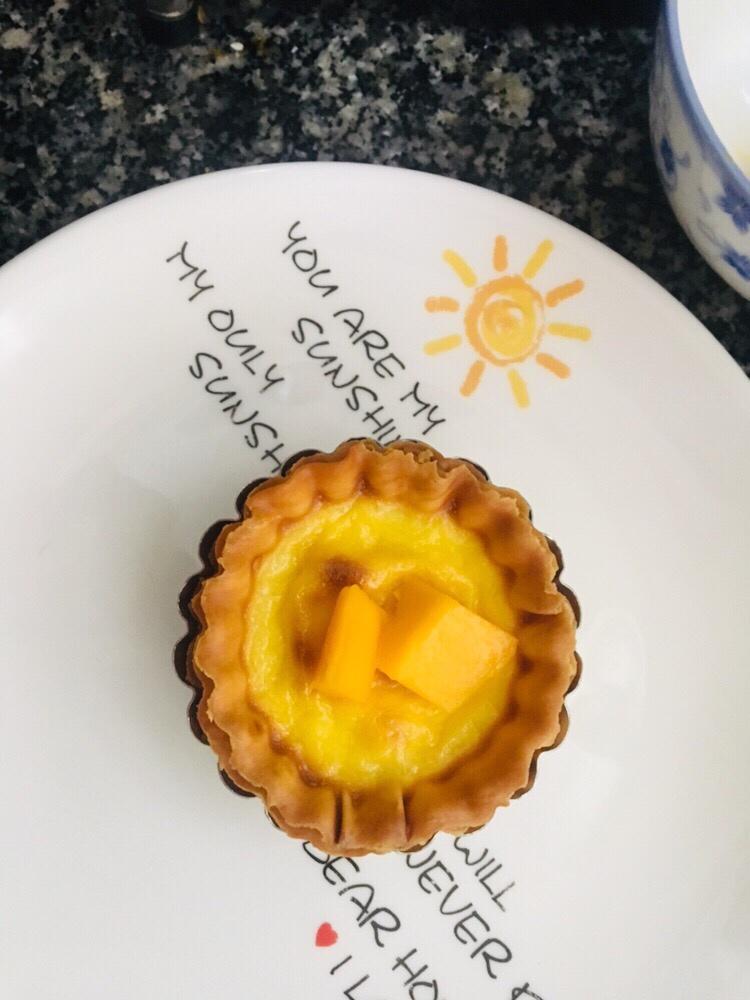 YOU ARE MY
SUNSHI
MY ONLY
SUNSH
WILL
NEVER
DEAR HO
I L